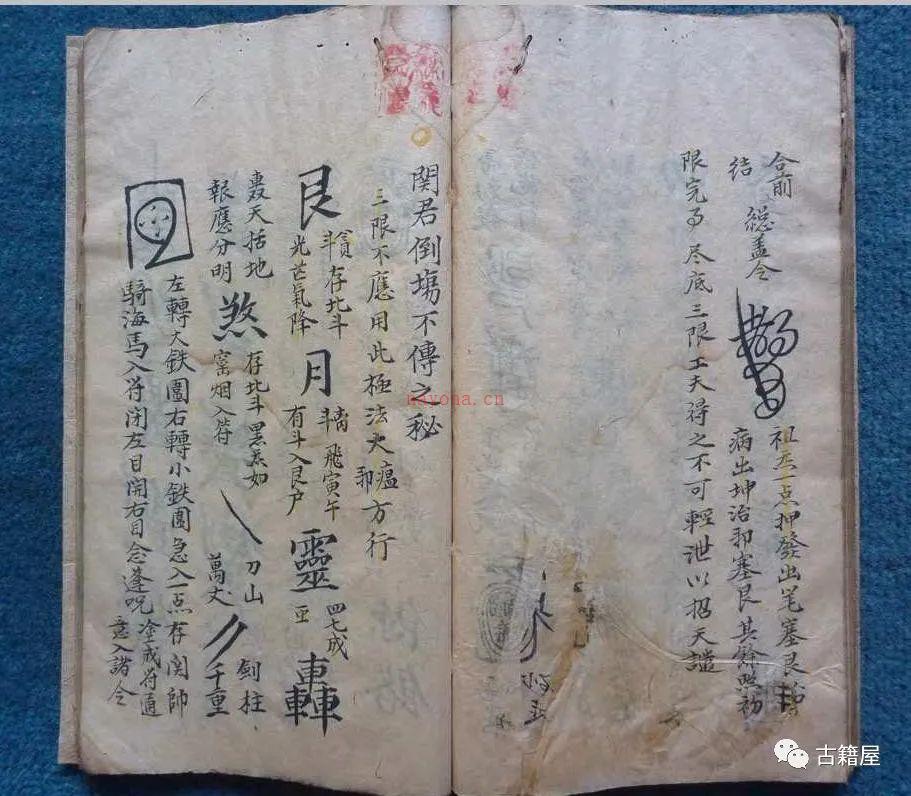 合前 総盖令
結
祖炁一点押發出笔塞艮
病出坤治卯塞艮其餘照初
限完了尽底三限工夫得之不可輕泄以招天譴
関君倒塲不傳之秘
三限不應用此極法火瘟方行
艮 存北斗
光芒氣降
月 飛寅午
有斗入艮户
靈 四七成
轟
轟天括地
報應分明
煞 存北斗黑炁如
窯烟入符
刀山
萬丈
劍柱
千重
左轉大鉄圍右轉小鉄圍急入一点存関帥
騎海馬入符闭左目開右目念蓬呪
塗成符道
意入諸令
nayona.cn
古籍屋